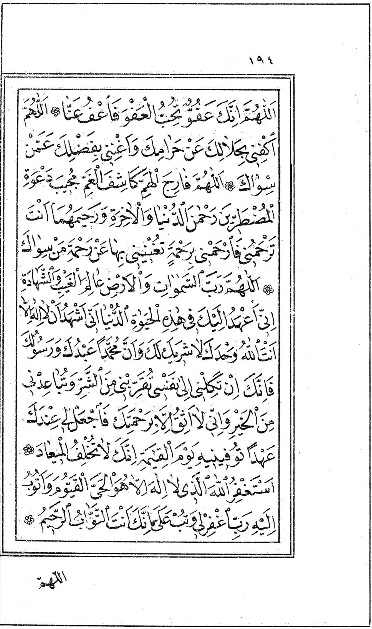 ١٩٤
اَللّٰهُمَّ اِنَّكَ عَفُوٌّ تُحِبُّ الْعَفْوَ فَاعْفُ عَنَّا ❁ اَللّٰهُمَّ
اَكْفِنِي بِحَلَالِكَ عَنْ حَرَامِكَ وَاَغْنِنِي بِفَضْلِكَ عَمَّنْ
سِوَاكَ ❁ اَللّٰهُمَّ فَارِجَ الْهَمِّ كَاشِفَ الْغَمِّ مُجِيبَ دَعْوَةِ
الْمُضْطَرِّينَ رَحْمٰنَ الدُّنْيَا وَالْاٰخِرَةِ وَرَحِيمَهُمَا اَنْتَ
تَرْحَمُنِي فَارْحَمْنِي بِرَحْمَةٍ تُغْنِينِي بِهَا عَنْ رَحْمَةِ مَنْ سِوَاكَ
❁ اَللّٰهُمَّ رَبَّ السَّمٰوَاتِ وَالْاَرْضِ عَالِمَ الْغَيْبِ وَالشَّهَادَةِ
اِنِّي اَعْهَدُ اِلَيْكَ فِي هٰذِهِ الْحَيٰوةِ الدُّنْيَا اَنِّي اَشْهَدُ اَنْ لَا اِلٰهَ اِلَّا
اَنْتَ اللهُ وَحْدَكَ لَا شَرِيكَ لَكَ وَاَنَّ مُحَمَّدًا عَبْدُكَ وَرَسُولُكَ
فَاِنَّكَ اِنْ تَكِلْنِي اِلٰى نَفْسِي تُقَرِّبْنِي مِنَ الشَّرِّ وَتُبَاعِدْنِي
مِنَ الْخَيْرِ وَاِنِّي لَا اَثِقُ اِلَّا بِرَحْمَتِكَ فَاجْعَلْ لِي عِنْدَكَ
عَهْدًا تُوَفِّينِيهِ يَوْمَ الْقِيٰمَةِ اِنَّكَ لَا تُخْلِفُ الْمِيعَادَ ❁
اَسْتَغْفِرُ اللهَ الَّذِي لَا اِلٰهَ اِلَّا هُوَ الْحَيُّ الْقَيُّومُ وَاَتُوبُ
اِلَيْهِ رَبِّ اغْفِرْ لِي وَتُبْ عَلَيَّ اِنَّكَ اَنْتَ التَّوَّابُ الرَّحِيمُ ❁
اَللّٰهُمَّ